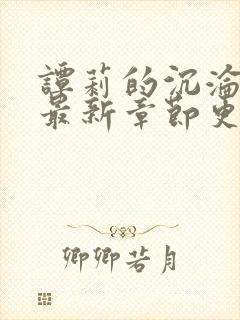 譚莉的沉淪
最新章節史
卿卿若月